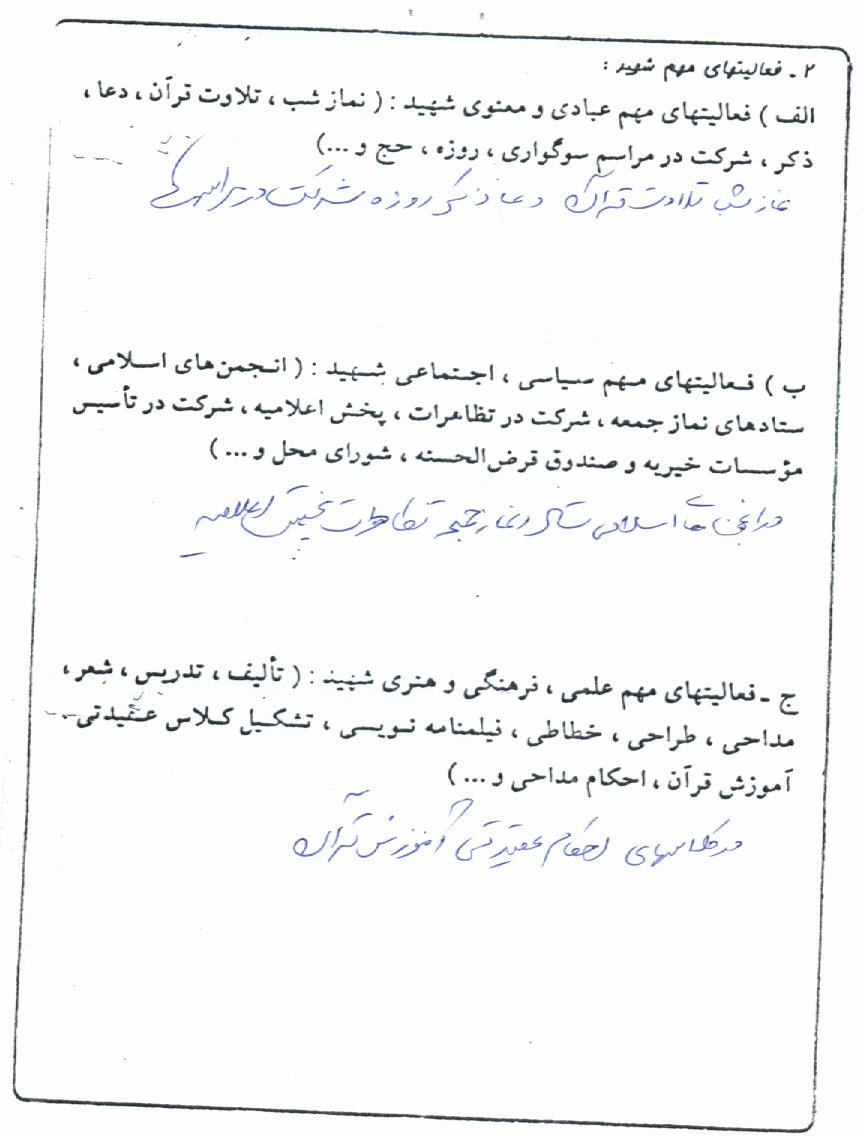 ۲ ـ فعالیتهای مهم شهید :
الف ) فعالیتهای مهم عبادی و معنوی شهید : ( نماز شب ، تلاوت قرآن ، دعا ،
ذکر ، شرکت در مراسم سوگواری ، روزه ، حج و ...)
نماز شب تلاوت قرآن دعا ذکر روزه شرکت در
ب ) فعالیتهای مهم سیاسی ، اجتماعی شهید : ( انجمن‌های اسلامی ،
ستادهای نماز جمعه ، شرکت در تظاهرات ، پخش اعلامیه ، شرکت در تأسیس
مؤسسات خیریه و صندوق قرض‌الحسنه ، شورای محل و ... )
در انجمن های اسلامی ستاد نماز جمعه تظاهرات پخش اعلامیه
ج ـ فعالیتهای مهم علمی ، فرهنگی و هنری شهید : ( تألیف ، تدریس ، شعر ،
مداحی ، طراحی ، خطاطی ، فیلمنامه نویسی ، تشکیل کلاس عقیدتی ـ
آموزش قرآن ، احکام مداحی و ... )
در کلاسهای احکام عقیدتی آموزش قرآن